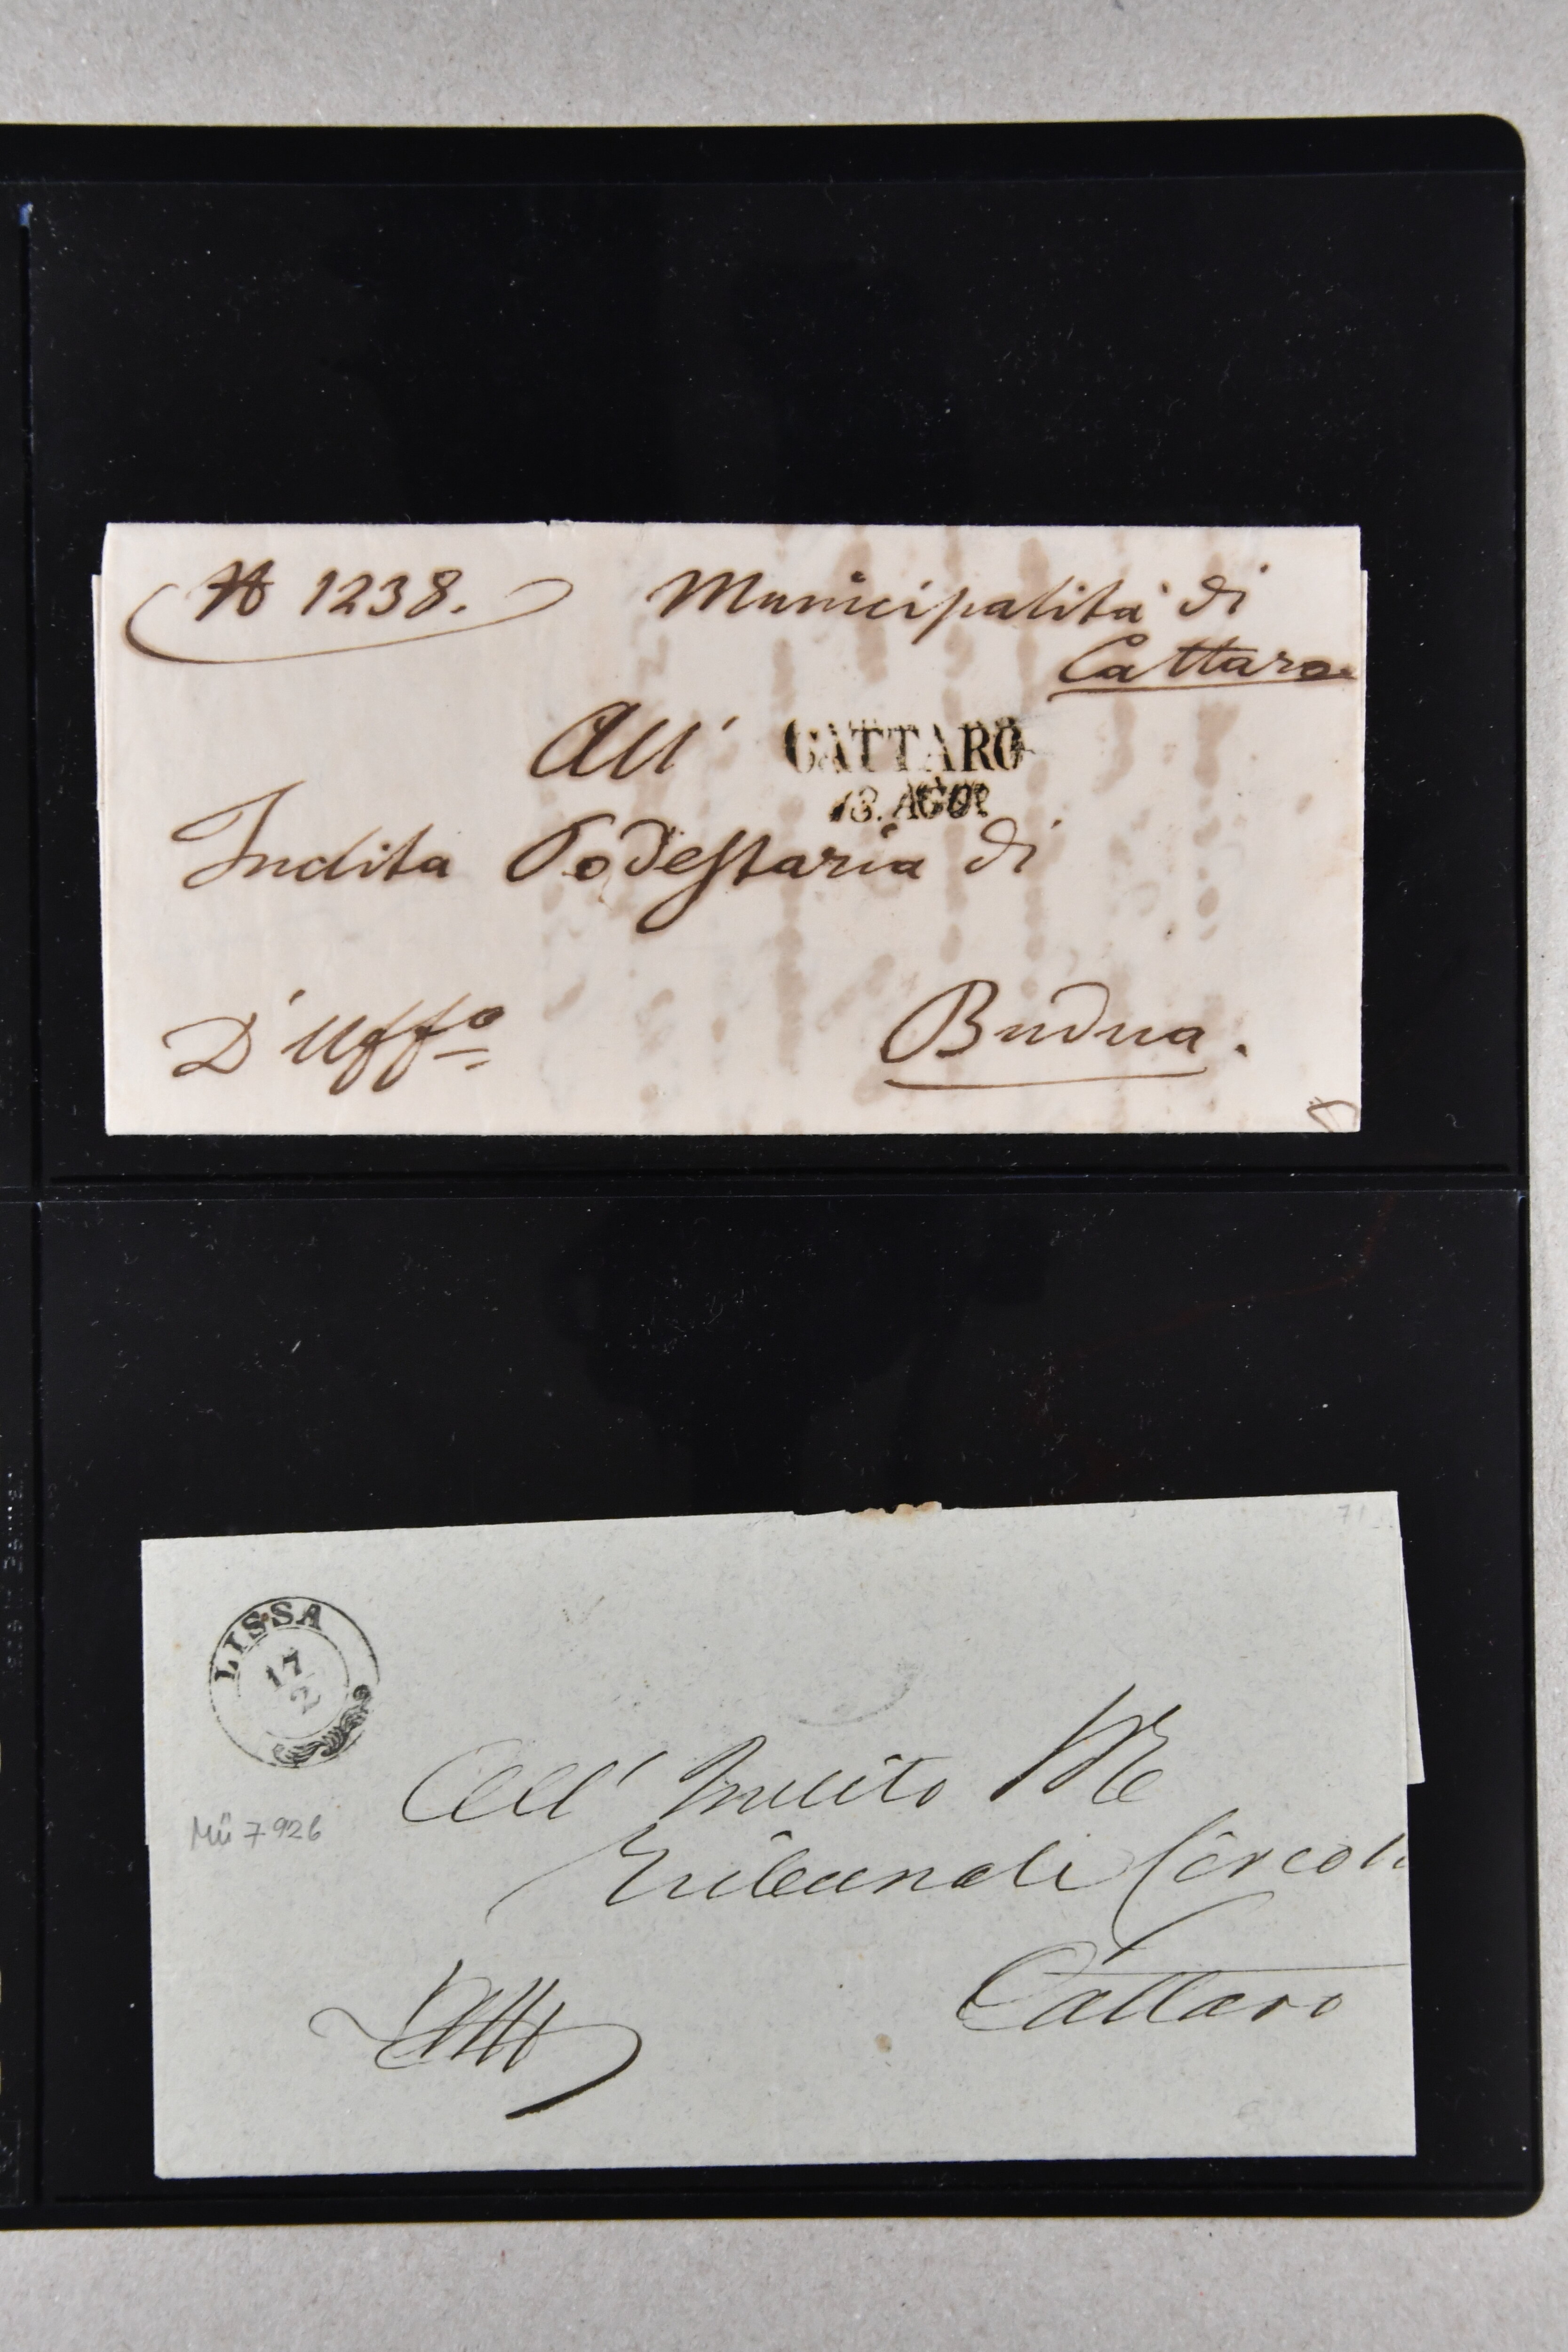 N 1238. Municipalità di
Cattaro
All' CATTARO
13. AGO
Inclita Podestaria di
D'Uffo
Budua.
71
LISSA
17
2
Mü 7926
All' Inclito
Tribunale Circol
Cattaro